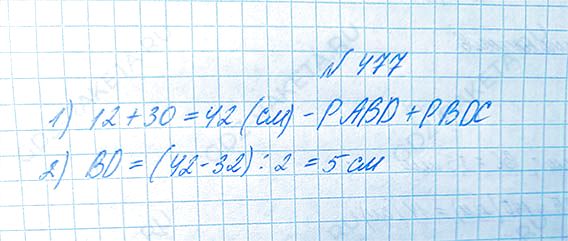 N 477
1) 12 + 30 = 42 (см) - PABD + PBDC
2) BD = (42 - 32) : 2 = 5 см